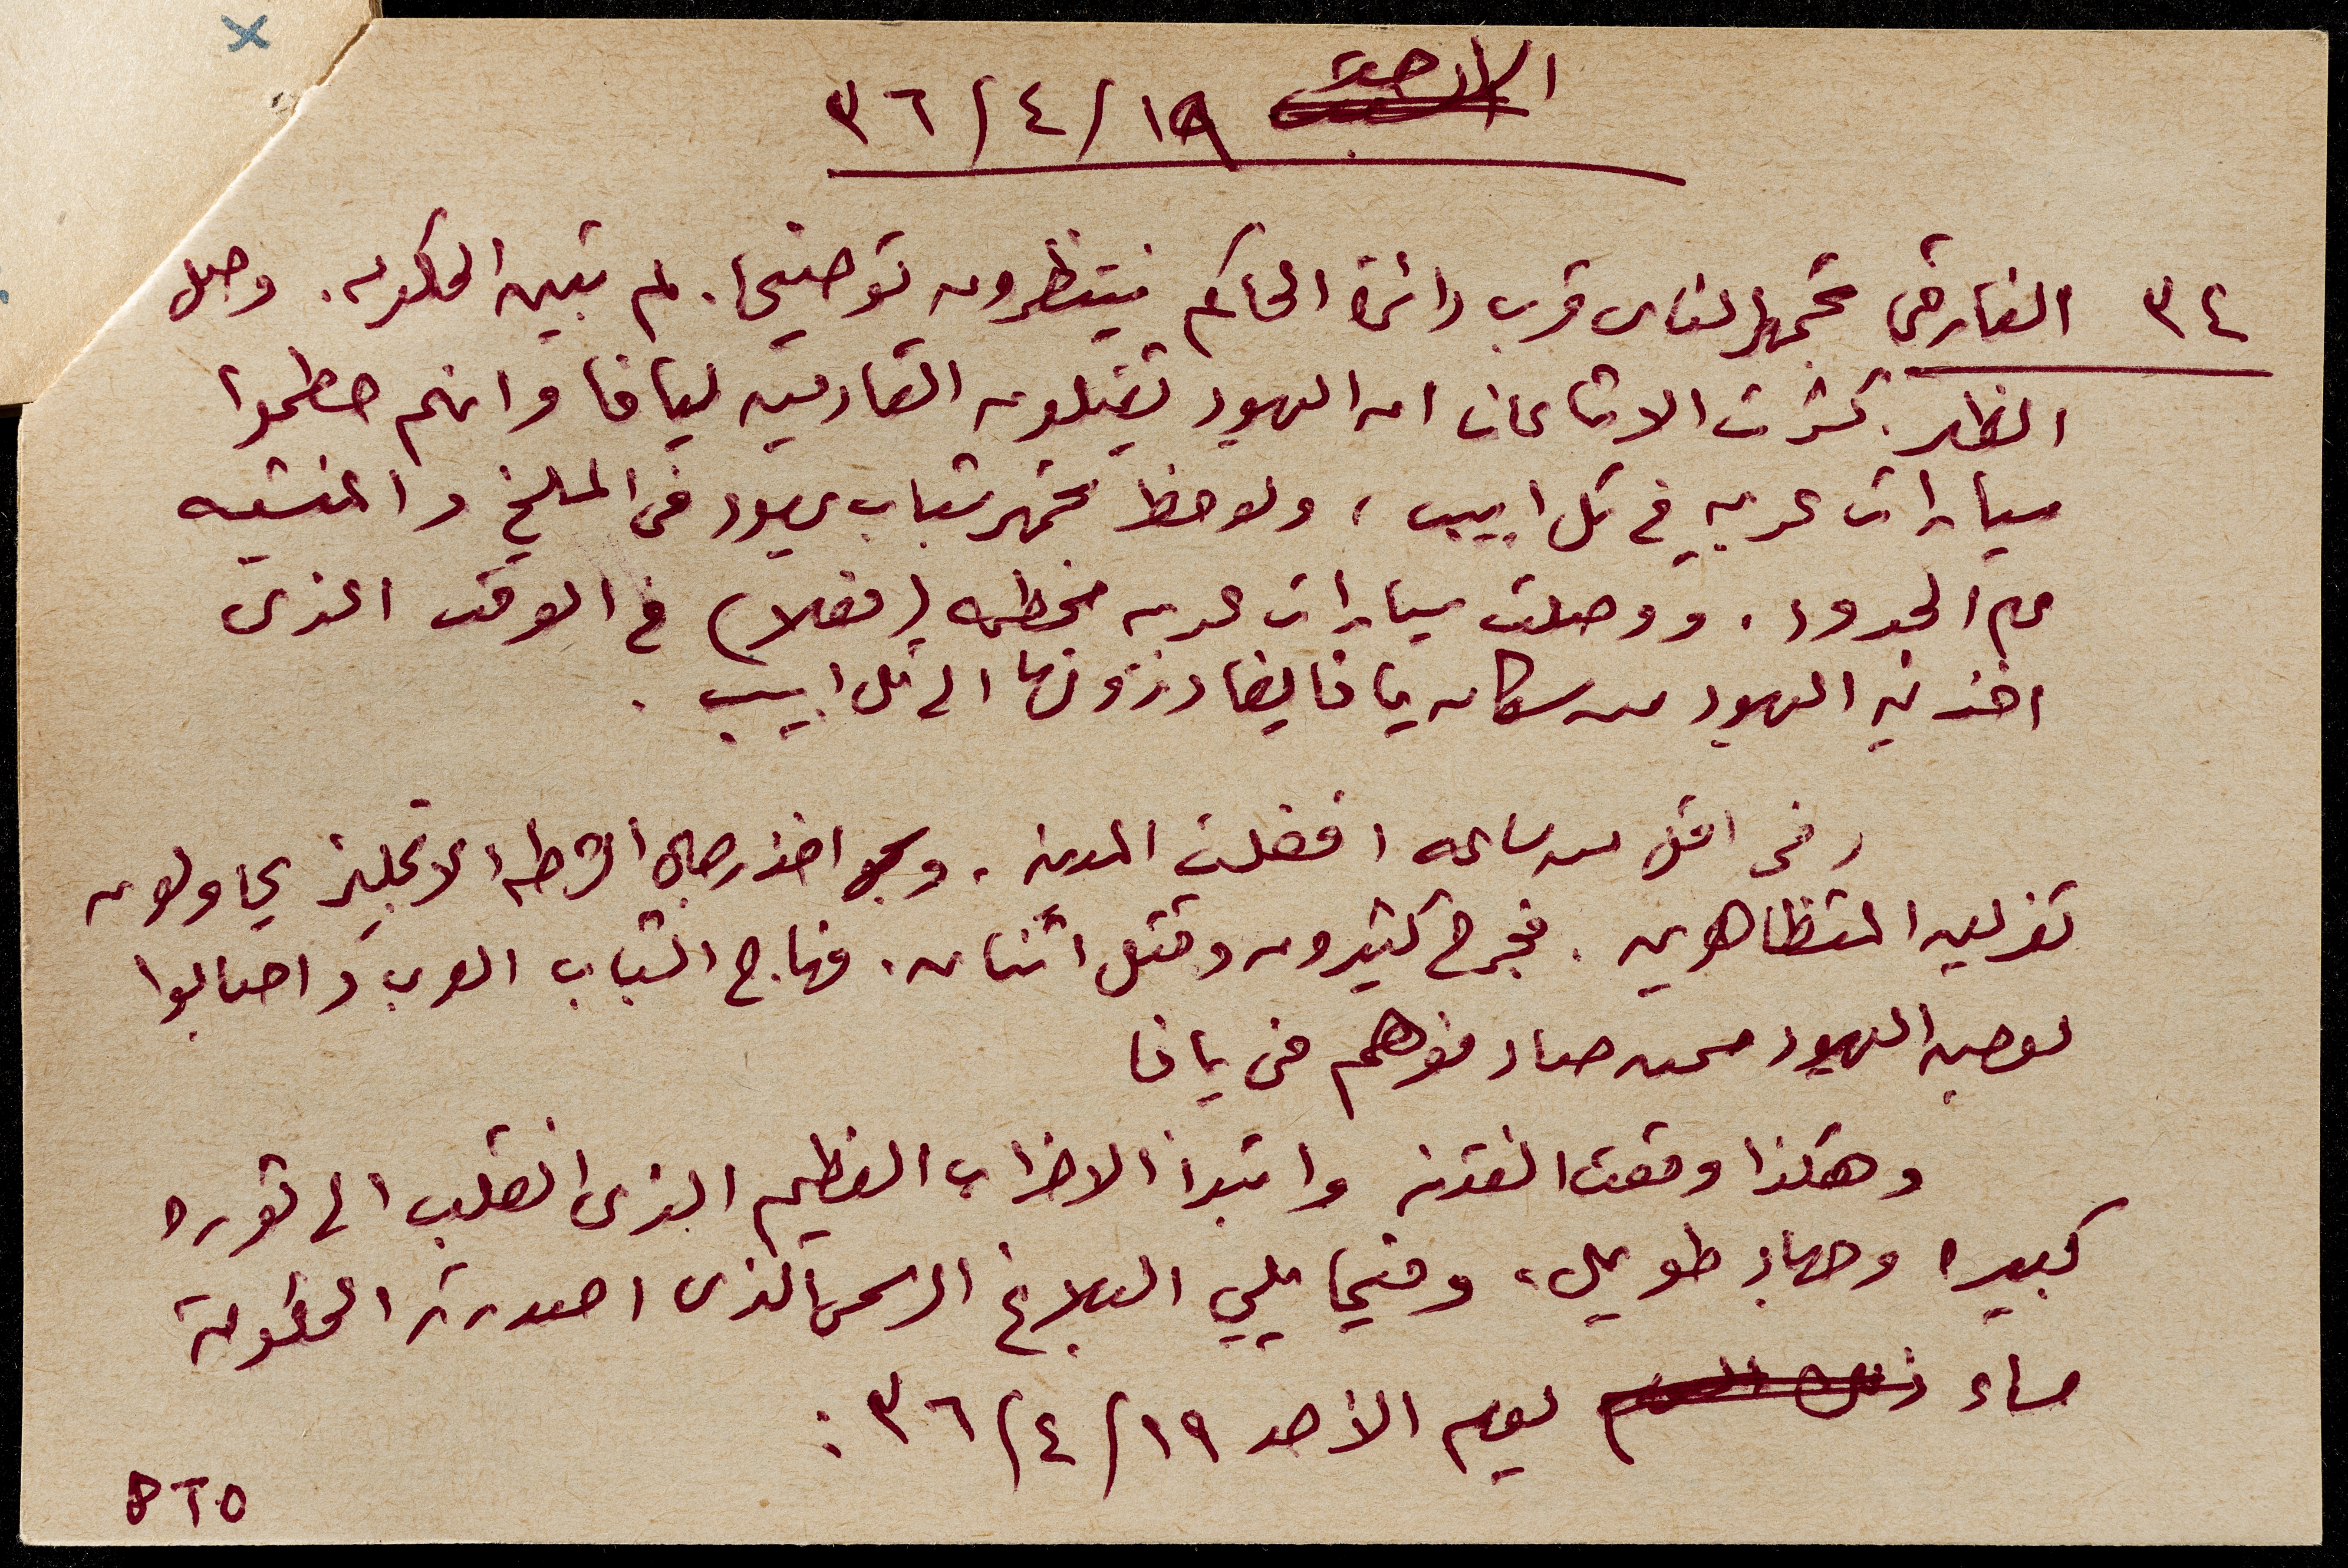 ١٩/٤/٣٦
٣٤ الفارض تجمهر الناس قرب دائرة الحاكم فينتظرون توضيحا. لم تبين الحكومه. وحل
الظهر. كثرت الاشاعات ان اليهود يقتلون القادمين ليافا وانهم حطموا
سيارات عربيه في تل ابيب، ولوحظ تجمهر شباب يهود في المسلخ والمنشيه
على الحدود. ووصلت سيارات عربيه محطمه (فعلا) في الوقت الذي
اخذ فيه اليهود من سكان يافا يغادرونها الى تل ابيب.
وفي اقل من ساعه اقفلت المدينه. واخذ رجال الشرطه الانجليز يحاولون
تفريق المتظاهرين. فجرح كثيرون وقتل اثنان. فهاج الشباب العرب واصابوا
بعض اليهود ممن صادفوهم في يافا
وهكذا وقعت الفتنه وابتدأ الاضراب العظيم الذي انقلب الى ثوره
كبيره وجهاد طويل، وفيما يلي البلاغ الرسمي الذي اصدرته الحكومة
مساء يوم الأحد ١٩/٤/٣٦:
PTO